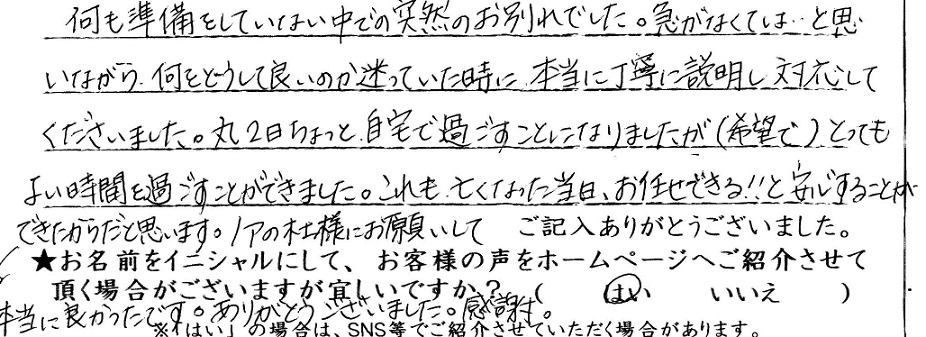 何も準備をしていない中での突然のお別れでした。急がなくては…と思
いながら、何をどうして良いのか迷っていた時に、本当に丁寧に説明し、対応して
くださいました。丸2日ちょっと、自宅で過ごすことになりましたが(希望で)とっても
よい時間を過ごすことができました。これも、亡くなった当日、お任せできる!!と安心することが
できたからだと思います。ノアの杜様にお願いして
ご記入ありがとうございました。
★お名前をイニシャルにして、お客様の声をホームページへご紹介させて
頂く場合がございますが宜しいですか? ( はい いいえ )
本当に良かったです。ありがとうございました。感謝
※「はい」の場合は、SNS等でご紹介させていただく場合があります。